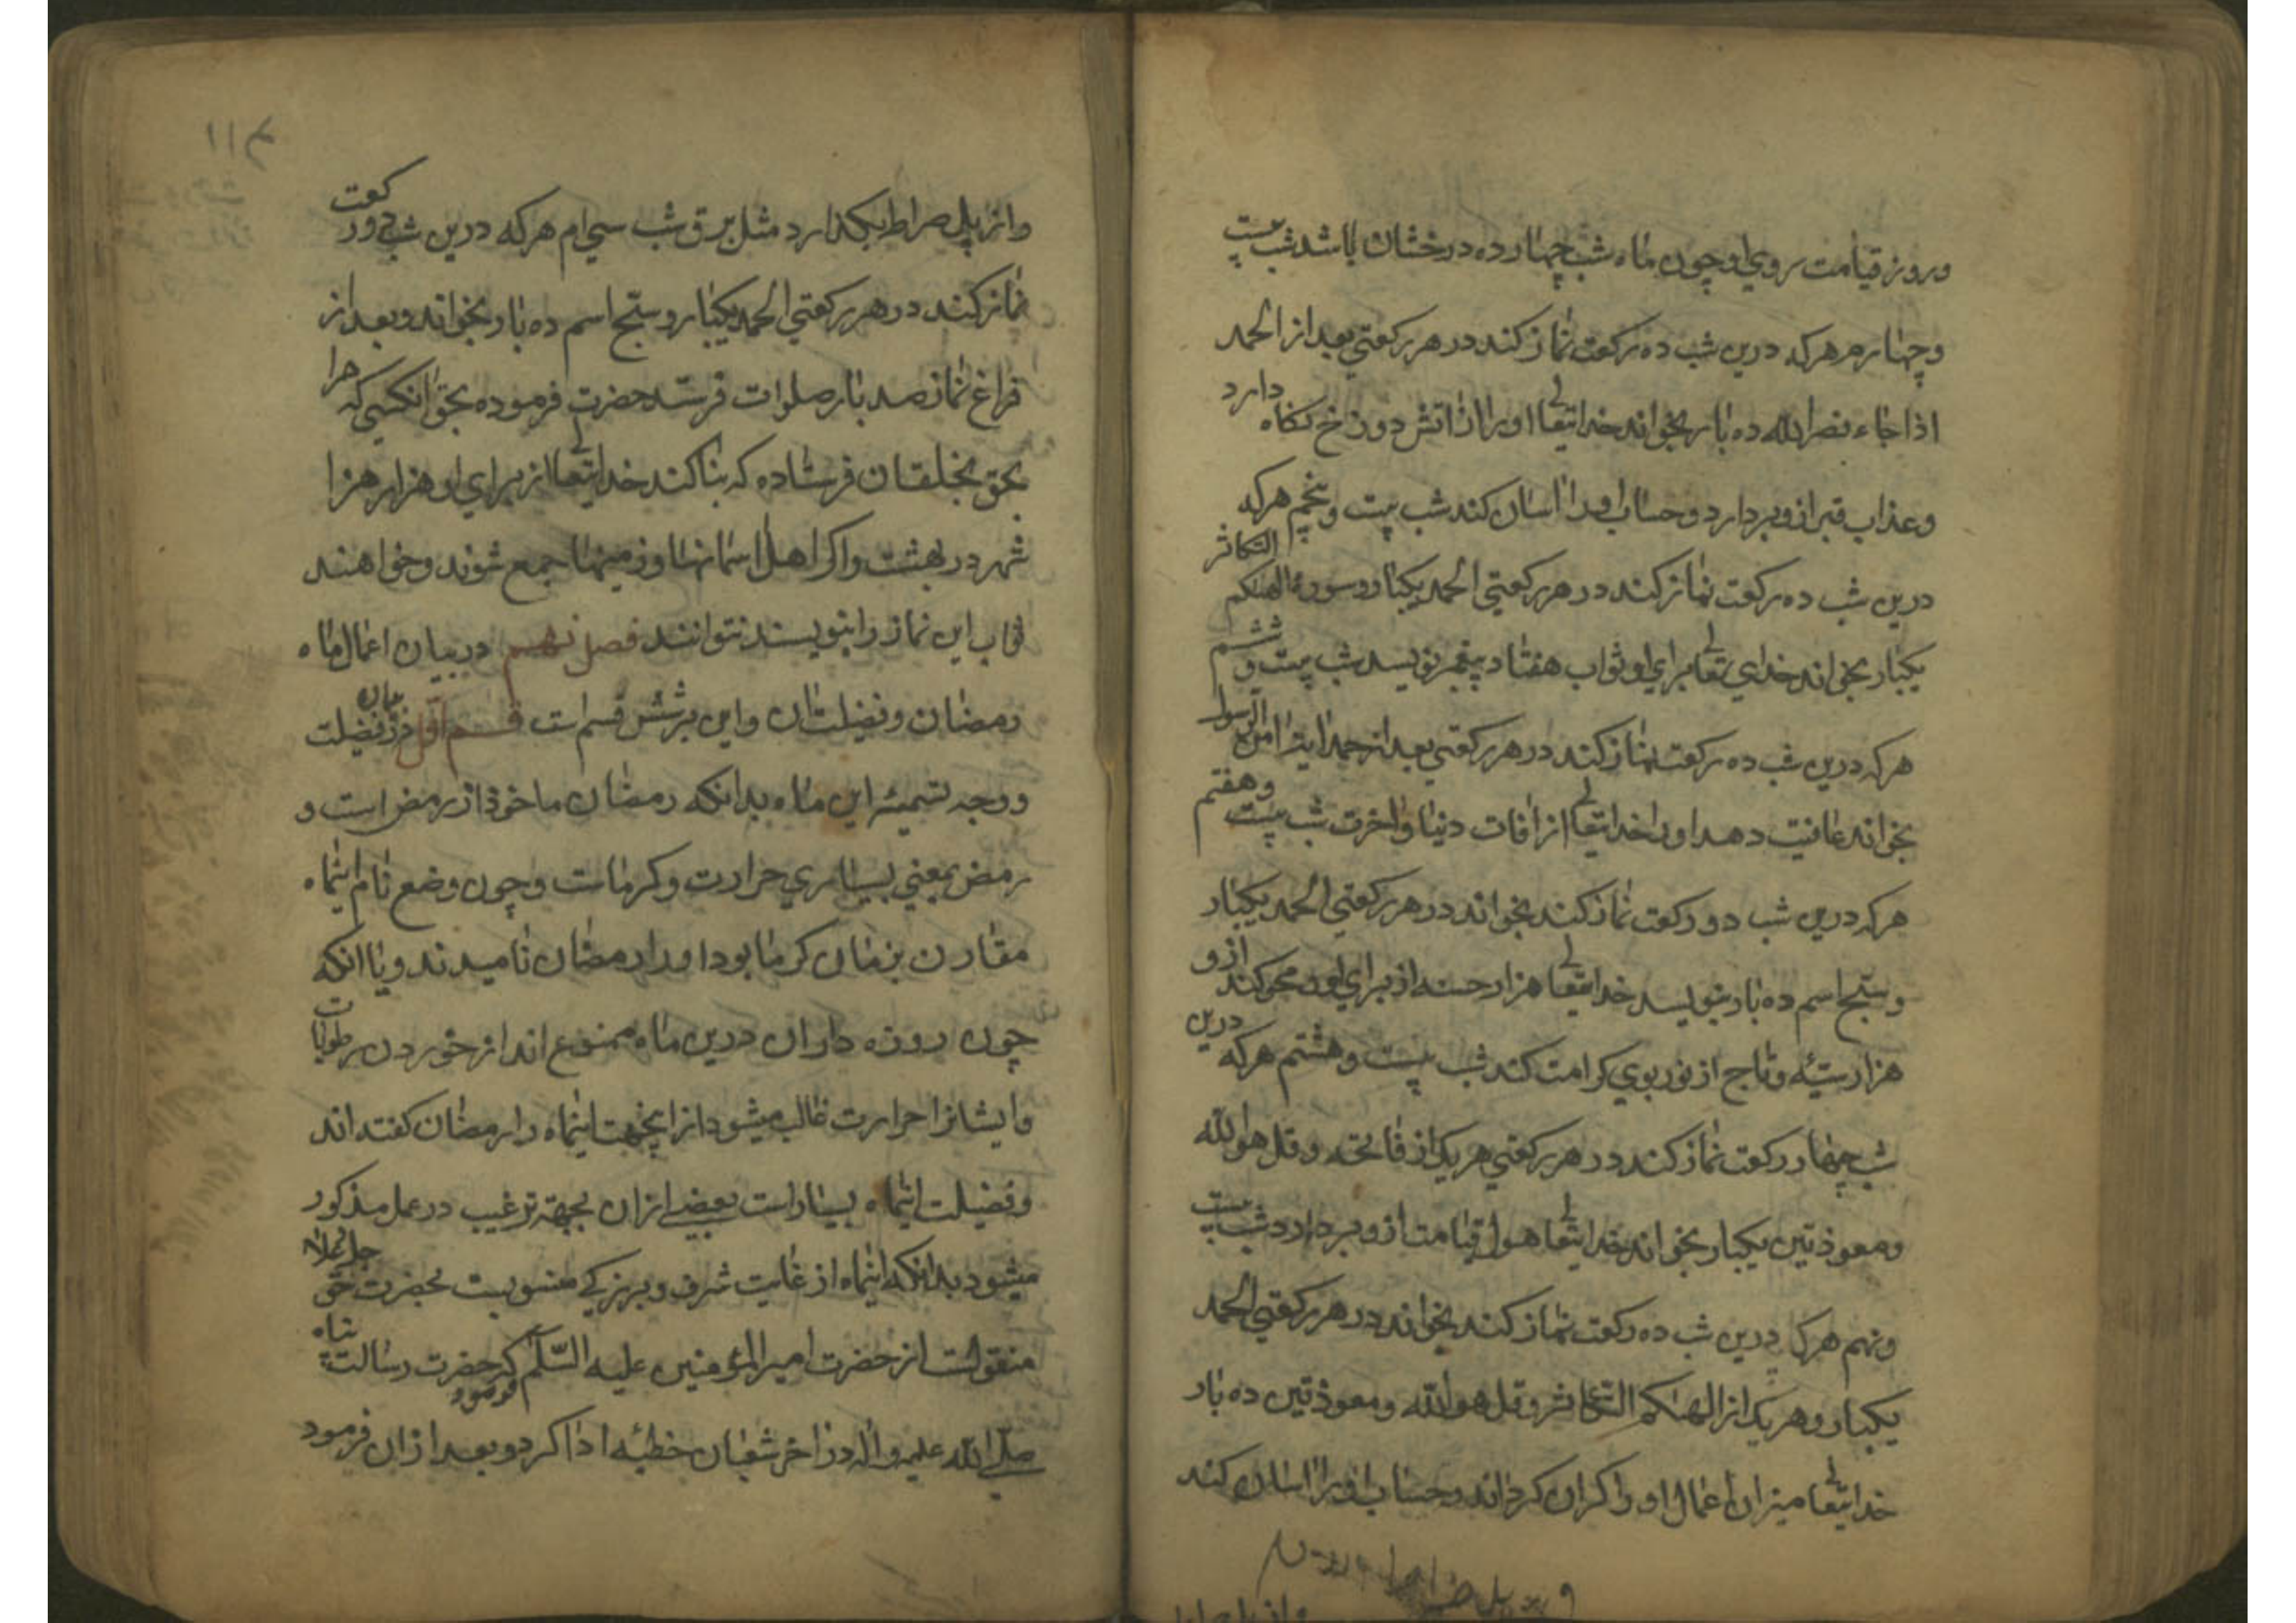 وروز قیامت روی او چون ماه شب چهارده درخشان باشد شب بیست
وچهارم هرکه درین شب ده رکعت نماز کند در هر رکعتی بعد از الحمد
اذا جاء نصر الله ده بار بخواند خدایتعالی او را از اتش دوزخ نکاه دارد
وعذاب قبر ازو بردارد وحساب او را اسان کند شب بیست وپنجم هرکه
درین شب ده رکعت نماز کند در هر رکعتی الحمد یکبار وسورهٔ الهیکم التکاثر
یکبار بخواند خدای تعالی برای او ثواب هفتاد پیغمبر نویسد شب بیست و ششم
هرکه درین شب ده رکعت نماز کند در هر رکعتی بعد از حمد ایة امن الرسول
بخواند عافیت دهد او را خدایتعالی از افات دنیا واخرت شب بیست وهفتم
هرکه درین شب دو رکعت نماز کند بخواند در هر رکعتی الحمد یکبار
وسبح اسم ده بار بنویسد خدایتعالی هزار حسنه از برای او ومحو کند ازو
هزار سیئه وتاج از نور بوی کرامت کند شب بیست وهشتم هرکه درین
شب چهار رکعت نماز کند در هر رکعتی هریک از فاتحه وقل هو الله
ومعوذتین یکبار بخواند خدایتعالی هول قیامت ازو بردارد شب بیست
ونهم هرکه درین شب ده رکعت نماز کند بخواند در هر رکعتی الحمد
یکبار وهریک از الهیکم التکاثر وقل هو الله ومعوذتین ده بار
خدایتعالی میزان اعمال او را کران کرداند وحساب او را اسان کند
۱۱۴
واز پل صراط بکذارد مثل برق شب سی ام هرکه درین شب دو رکعت
نماز کند در هر رکعتی الحمد یکبار وسبح اسم ده بار بخواند وبعد از
فراغ نماز صد بار صلوات فرستد حضرت فرموده بحق انکسی که مرا
بحق بخلقان فرستاده که بنا کند خدایتعالی از برای او هزار هزار
شهر در بهشت واکر اهل اسمانها وزمینها جمع شوند وخواهند
ثواب این نماز را بنویسند نتوانند فصل نهم در بیان اعمال ماه
رمضان وفضیلت ان واین برشش قسم است قسم اول در بیان فضیلت
ووجه تسمیهٔ این ماه بدانکه رمضان ماخوذ از رمض است و
رمض بمعنی بسیاری حرارت وکرماست وچون وضع نام اینماه
مقارن بزمان کرما بود اورا رمضان نامیدند ویا انکه
چون روزه داران درین ماه ممنوع اند از خوردن رطوبات
وایشانرا حرارت غالب میشود ازاینجهت اینماه را رمضان کفته اند
وفضیلت اینماه بسیار است بعضی از ان بجهة ترغیب در عمل مذکور
میشود بدانکه اینماه از غایت شرف وبزرکی منسوبست بحضرت حق جل وعلا
منقولست از حضرت امیر المؤمنین علیه السلم که حضرت رسالت پناه
صلی الله علیه واله در اخر شعبان خطبه ادا کرد وبعد از ان فرمود